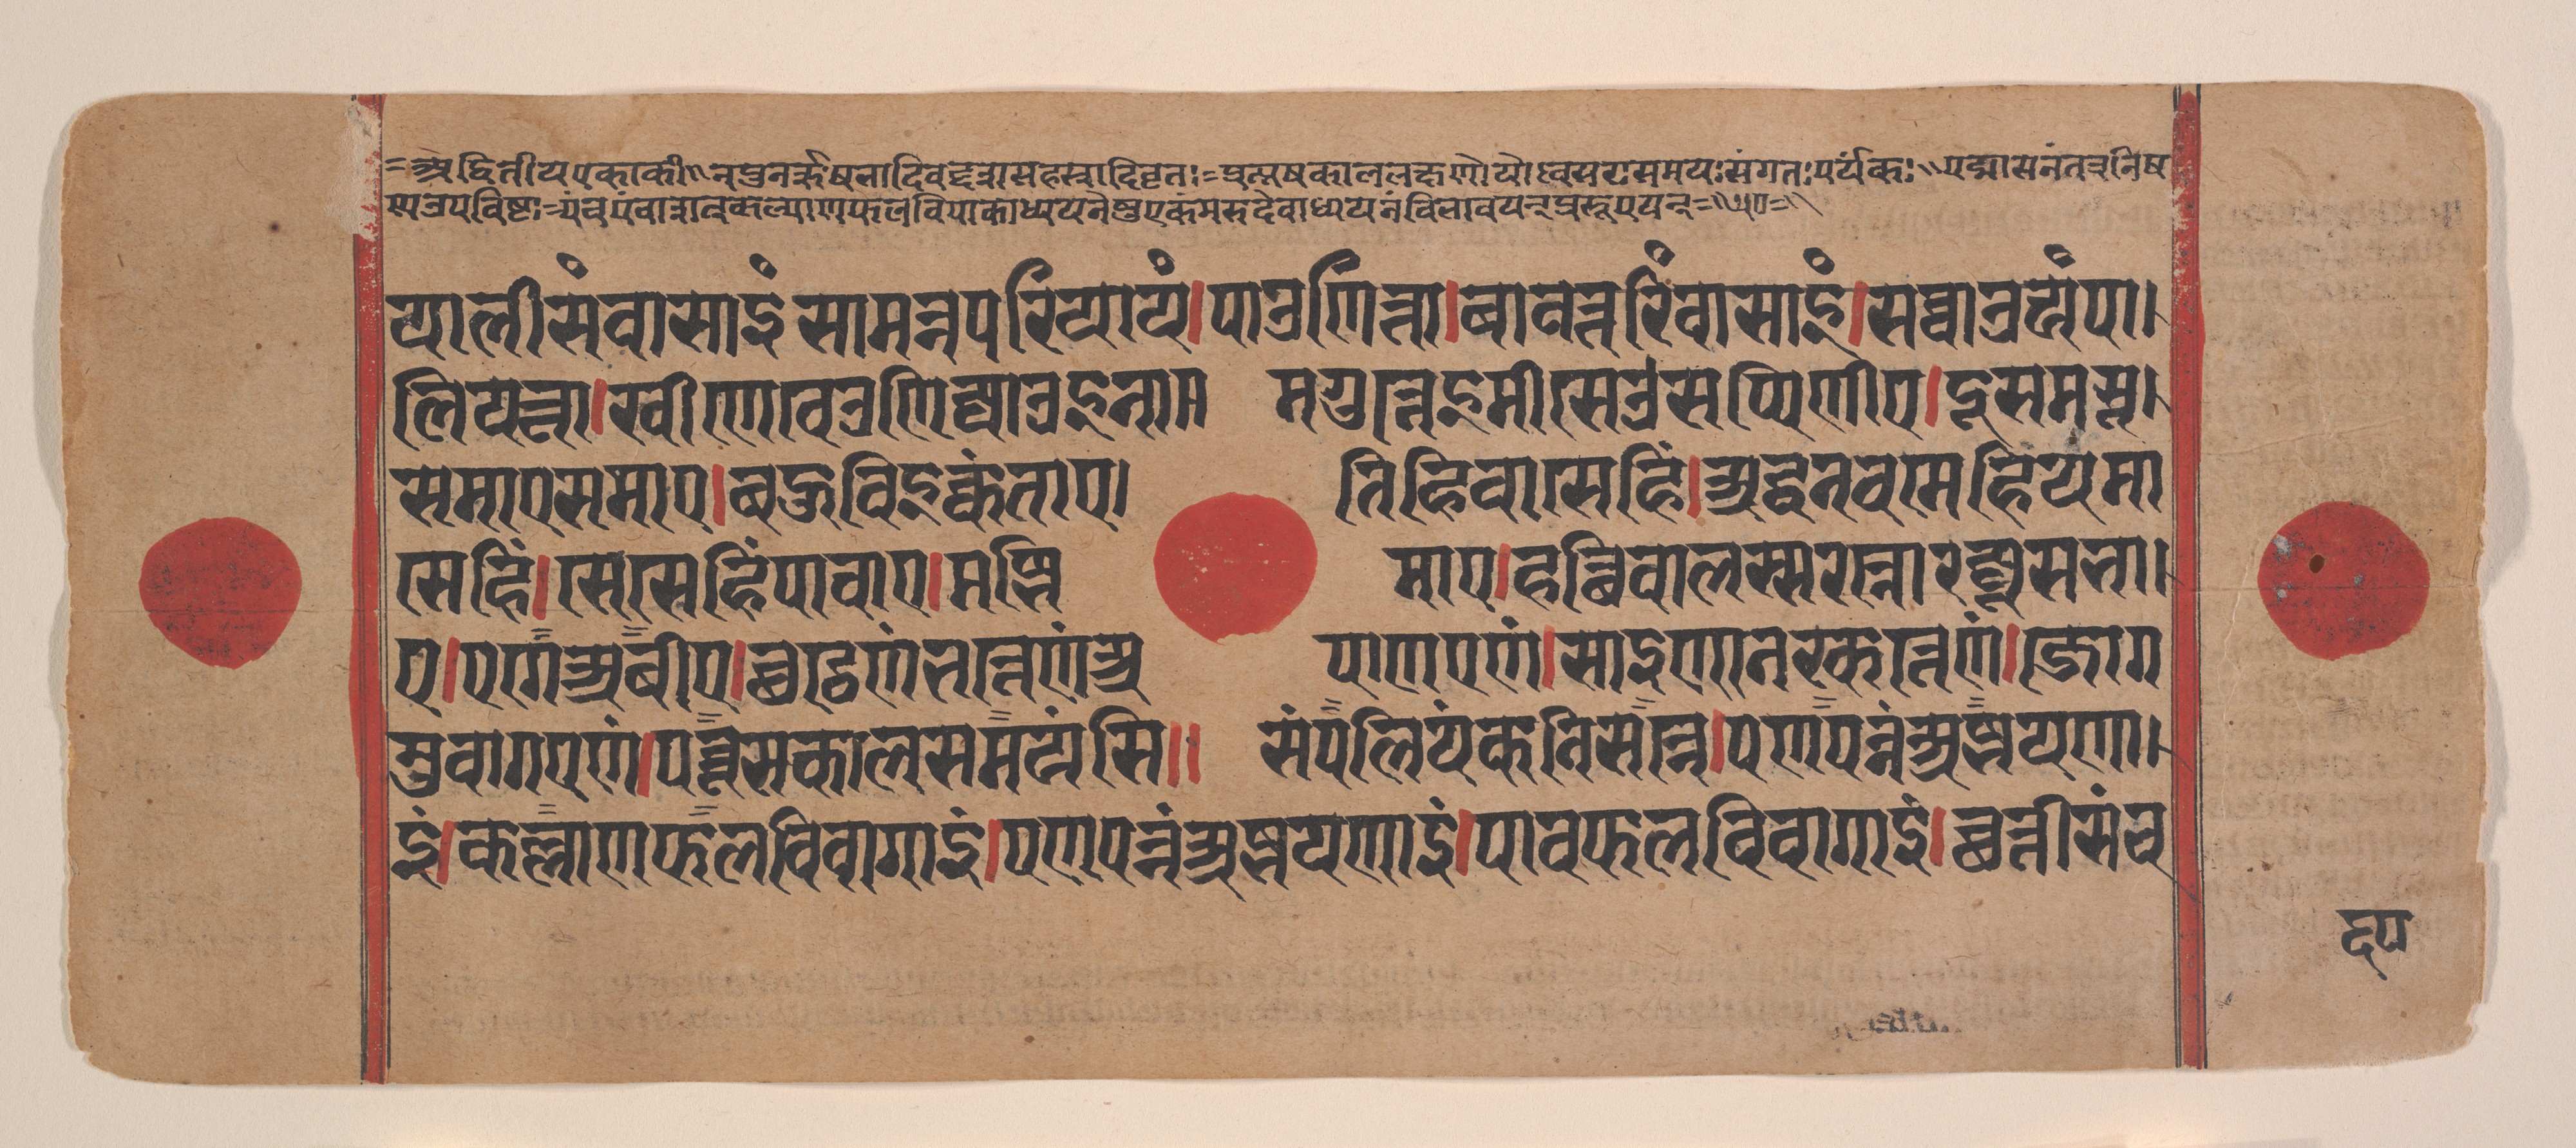 =अद्वितीय एकाकी॥न पुनर्ऋषभादिवद्दशसहस्रादिवृतः=प्रत्यूषकाललक्षणो योऽवसरः समयः संगतः पर्यंकः॥पद्मासनं तत्र निष
ण्ण उपविष्टः=पंचपंचाशत्कल्याणफलविपाकाध्ययनेषु एकं मरुदेवाध्ययनं विभावयन् प्ररूपयन्=॥
यालीसं वासाइं सामन्नपरियायं।पाउणित्ता।बावत्तरिं वासाइं।सव्वाउयं पा।
लियत्ता।खीणे वेअणिज्जाउइनामगुत्ते इमीसे उसप्पिणीए।दूसमसू।
समाए समाए।बहुविइक्कंताए। तिहिं वासेहिं।अद्धनवमेहिं य मा
सेहिं।सेसेहिं पावाए।मज्झि माए।हत्थिवालस्स रन्नो रज्जूसभा।
ए।एगे अबीए।छट्ठेणं भत्तेणं अ पाणएणं।साइणा नरकत्तेणं।जोग
मुवागएणं।पच्चूसकालसमयंसि॥ संपलियंकनिसन्ने।पणपन्नं अज्झयणा।
इं।कल्लाणफलविवागाइं।पणपन्नं अज्झयणाइं।पावफलविवागाइं।छत्तीसं च
६५